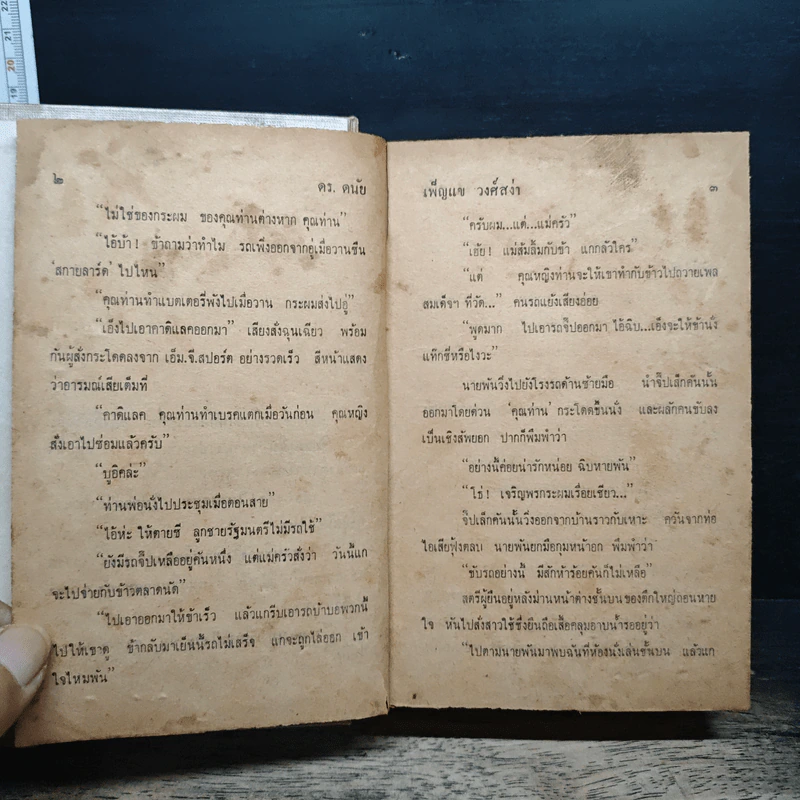 ๒ ดร. ดนัย
“ไม่ใช่ของกระผม ของคุณท่านต่างหาก คุณท่าน”
“ไอ้บ้า! ข้าถามว่าทำไม รถเพิ่งออกจากอู่เมื่อวานซืน
‘สกายลาร์ค’ ไปไหน”
“คุณท่านทำแบตเตอรี่พังไปเมื่อวาน กระผมส่งไปอู่”
“เอ็งไปเอาคาดิแลคออกมา” เสียงสั่งฉุนเฉียว พร้อม
กันผู้สั่งกระโดดลงจาก เอ็ม.จี.สปอร์ต อย่างรวดเร็ว สีหน้าแสดง
ว่าอารมณ์เสียเต็มที่
“คาดิแลค คุณท่านทำเบรคแตกเมื่อวันก่อน คุณหญิง
สั่งเอาไปซ่อมแล้วครับ”
“บูอิคล่ะ”
“ท่านพ่อนั่งไปประชุมเมื่อตอนสาย”
“ไอ้ห่ะ ให้ตายซี ลูกชายรัฐมนตรีไม่มีรถใช้”
“ยังมีรถจี๊ปเหลืออยู่คันหนึ่ง แต่แม่ครัวสั่งว่า วันนี้แก
จะไปจ่ายกับข้าวตลาดนัด”
“ไปเอาออกมาให้ข้าเร็ว แล้วแกรีบเอารถบ้าบอพวกนี้
ไปให้เขาดู ข้ากลับมาเย็นนี้รถไม่เสร็จ แกจะถูกไล่ออก เข้า
ใจไหมพัน”
เพ็ญแข วงศ์สง่า ๓
“ครับผม...แต่...แม่ครัว”
“เฮ้ย! แม่ส้มลิ้มกับข้า แกกลัวใคร”
“แต่ คุณหญิงท่านจะให้เขาทำกับข้าวไปถวายเพล
สมเด็จฯ ที่วัด...” คนรถแย้งเสียงอ่อย
“พูดมาก ไปเอารถจี๊ปออกมา ไอ้ฉิบ...เอ็งจะให้ข้านั่ง
แท๊กซี่หรือไงวะ”
นายพันวิ่งไปยังโรงรถด้านซ้ายมือ นำจี๊ปเล็กคันนั้น
ออกมาโดยด่วน ‘คุณท่าน’ กระโดดขึ้นนั่ง และผลักคนขับลง
เป็นเชิงสัพยอก ปากก็พึมพำว่า
“อย่างนี้ค่อยน่ารักหน่อย ฉิบหายพัน”
“โธ่! เจริญพรกระผมเรื่อยเชียว...”
จี๊ปเล็กคันนั้นวิ่งออกจากบ้านราวกับเหาะ ควันจากท่อ
ไอเสียฟุ้งตลบ นายพันยกมือกุมหน้าอก พึมพำว่า
“ขับรถอย่างนี้ มีสักห้าร้อยคันก็ไม่เหลือ”
สตรีผู้ยืนอยู่หลังม่านหน้าต่างชั้นบนของตึกใหญ่ถอนหาย
ใจ หันไปสั่งสาวใช้ซึ่งยืนถือเสื้อคลุมอาบน้ำรออยู่ว่า
“ไปตามนายพันมาพบฉันที่ห้องนั่งเล่นชั้นบน แล้วแก